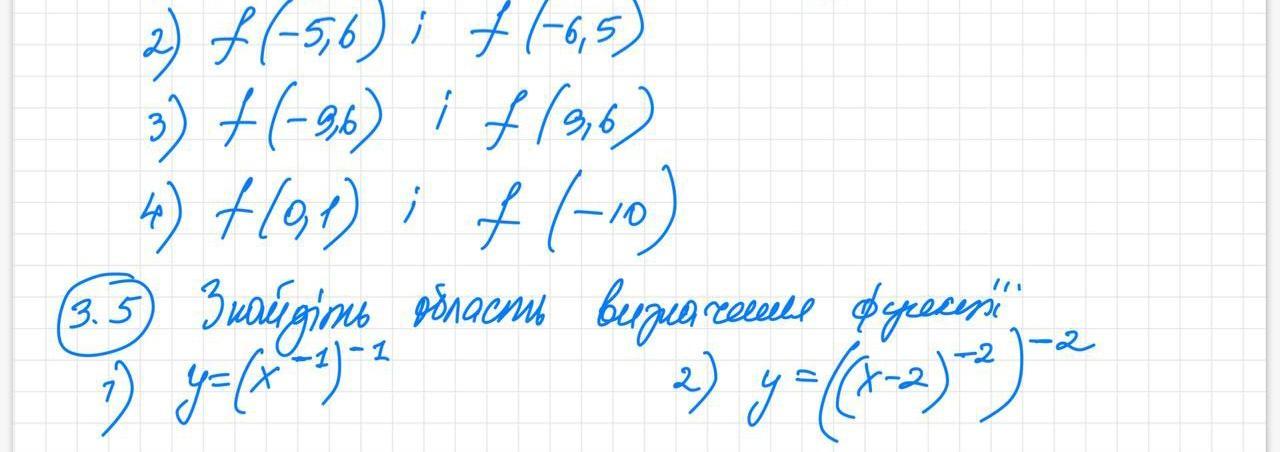 2) f(-5,6) і f(-6,5)
3) f(-9,6) і f(9,6)
4) f(0,1) і f(-10)
3.5 Знайдіть область визначення функції
1) y=(x⁻¹)⁻¹ 2) y=((x-2)⁻²)⁻²